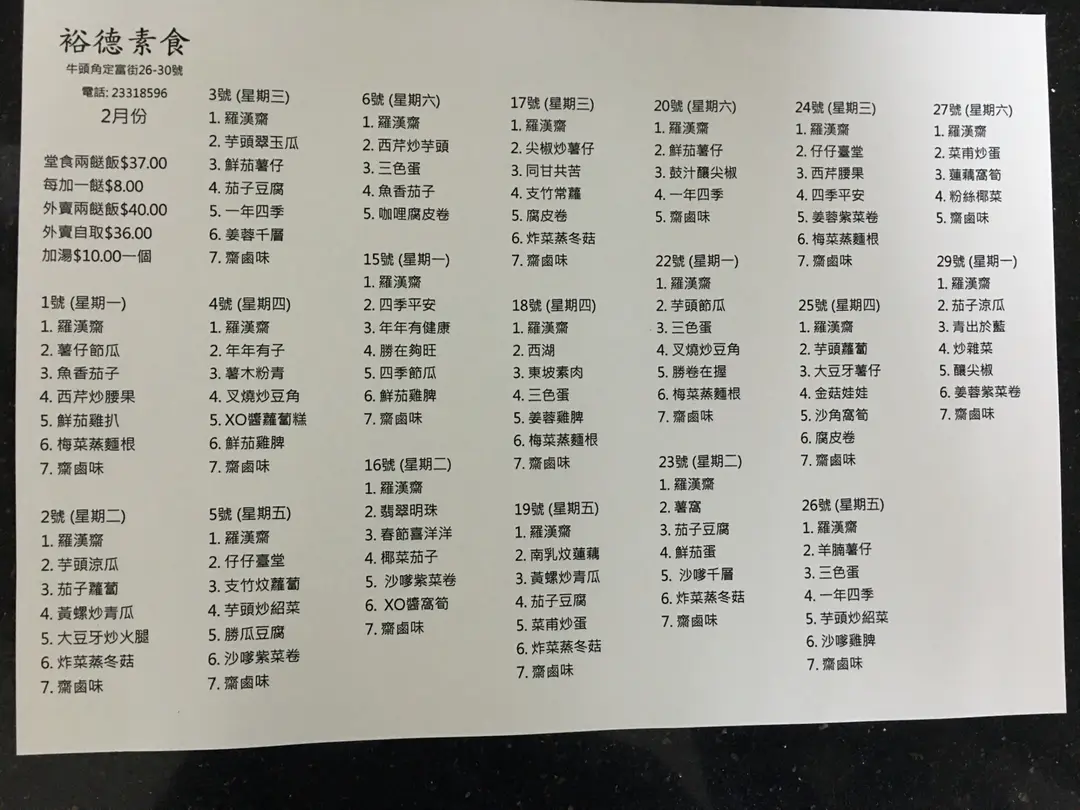 裕德素食
牛頭角定富街26-30號
電話: 23318596
2月份
堂食兩餸飯$37.00
每加一餸$8.00
外賣兩餸飯$40.00
外賣自取$36.00
加湯$10.00一個
1號 (星期一)
1. 羅漢齋
2. 薯仔節瓜
3. 魚香茄子
4. 西芹炒腰果
5. 鮮茄雞扒
6. 梅菜蒸麵根
7. 齋鹵味
2號 (星期二)
1. 羅漢齋
2. 芋頭涼瓜
3. 茄子蘿蔔
4. 黃螺炒青瓜
5. 大豆牙炒火腿
6. 炸菜蒸冬菇
7. 齋鹵味
3號 (星期三)
1. 羅漢齋
2. 芋頭翠玉瓜
3. 鮮茄薯仔
4. 茄子豆腐
5. 一年四季
6. 姜蓉千層
7. 齋鹵味
4號 (星期四)
1. 羅漢齋
2. 年年有子
3. 薯木粉青
4. 叉燒炒豆角
5. XO醬蘿蔔糕
6. 鮮茄雞脾
7. 齋鹵味
5號 (星期五)
1. 羅漢齋
2. 仔仔臺堂
3. 支竹炆蘿蔔
4. 芋頭炒紹菜
5. 勝瓜豆腐
6. 沙嗲紫菜卷
7. 齋鹵味
6號 (星期六)
1. 羅漢齋
2. 西芹炒芋頭
3. 三色蛋
4. 魚香茄子
5. 咖哩腐皮卷
15號 (星期一)
1. 羅漢齋
2. 四季平安
3. 年年有健康
4. 勝在夠旺
5. 四季節瓜
6. 鮮茄雞脾
7. 齋鹵味
16號 (星期二)
1. 羅漢齋
2. 翡翠明珠
3. 春節喜洋洋
4. 椰菜茄子
5. 沙嗲紫菜卷
6. XO醬窩筍
7. 齋鹵味
17號 (星期三)
1. 羅漢齋
2. 尖椒炒薯仔
3. 同甘共苦
4. 支竹常蘿
5. 腐皮卷
6. 炸菜蒸冬菇
7. 齋鹵味
18號 (星期四)
1. 羅漢齋
2. 西湖
3. 東坡素肉
4. 三色蛋
5. 姜蓉雞脾
6. 梅菜蒸麵根
7. 齋鹵味
19號 (星期五)
1. 羅漢齋
2. 南乳炆蓮藕
3. 黃螺炒青瓜
4. 茄子豆腐
5. 菜甫炒蛋
6. 炸菜蒸冬菇
7. 齋鹵味
20號 (星期六)
1. 羅漢齋
2. 鮮茄薯仔
3. 鼓汁釀尖椒
4. 一年四季
5. 齋鹵味
22號 (星期一)
1. 羅漢齋
2. 芋頭節瓜
3. 三色蛋
4. 叉燒炒豆角
5. 勝卷在握
6. 梅菜蒸麵根
7. 齋鹵味
23號 (星期二)
1. 羅漢齋
2. 薯窩
3. 茄子豆腐
4. 鮮茄蛋
5. 沙嗲千層
6. 炸菜蒸冬菇
7. 齋鹵味
24號 (星期三)
1. 羅漢齋
2. 仔仔臺堂
3. 西芹腰果
4. 四季平安
5. 姜蓉紫菜卷
6. 梅菜蒸麵根
7. 齋鹵味
25號 (星期四)
1. 羅漢齋
2. 芋頭蘿蔔
3. 大豆牙薯仔
4. 金菇娃娃
5. 沙角窩筍
6. 腐皮卷
7. 齋鹵味
26號 (星期五)
1. 羅漢齋
2. 羊腩薯仔
3. 三色蛋
4. 一年四季
5. 芋頭炒紹菜
6. 沙嗲雞脾
7. 齋鹵味
27號 (星期六)
1. 羅漢齋
2. 菜甫炒蛋
3. 蓮藕窩筍
4. 粉絲椰菜
5. 齋鹵味
29號 (星期一)
1. 羅漢齋
2. 茄子涼瓜
3. 青出於藍
4. 炒雜菜
5. 釀尖椒
6. 姜蓉紫菜卷
7. 齋鹵味